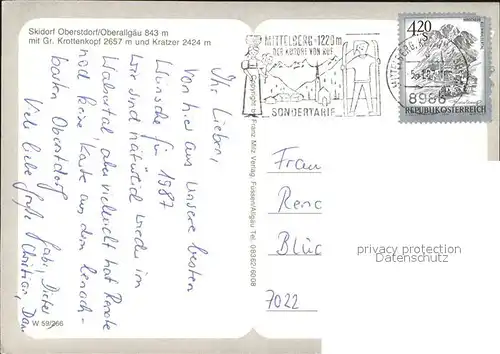 Skidorf Oberstdorf/Oberallgäu 843 m
mit Gr. Krottenkopf 2657 m und Kratzer 2424 m
Ihr Lieben,
Von hier aus unsere besten
Wünsche für 1987
wir sind natürlich wieder im
Walsertal aber vielleicht hat Renate
noch keine Karte aus dem benach-
barten Oberstdorf
Viele liebe Grüße Gabi, Dieter,
Christian, Dani
W 59/266
Copyright by Franz Milz Verlag, Füssen/Allgäu Tel. 08362/6008
MITTELBERG · 1220 m
DER KURORT VON RUF
SONDERTARIF
8986
4.20
REPUBLIK ÖSTERREICH
Frau
Rena
Blüc
7022
privacy protection
Datenschutz